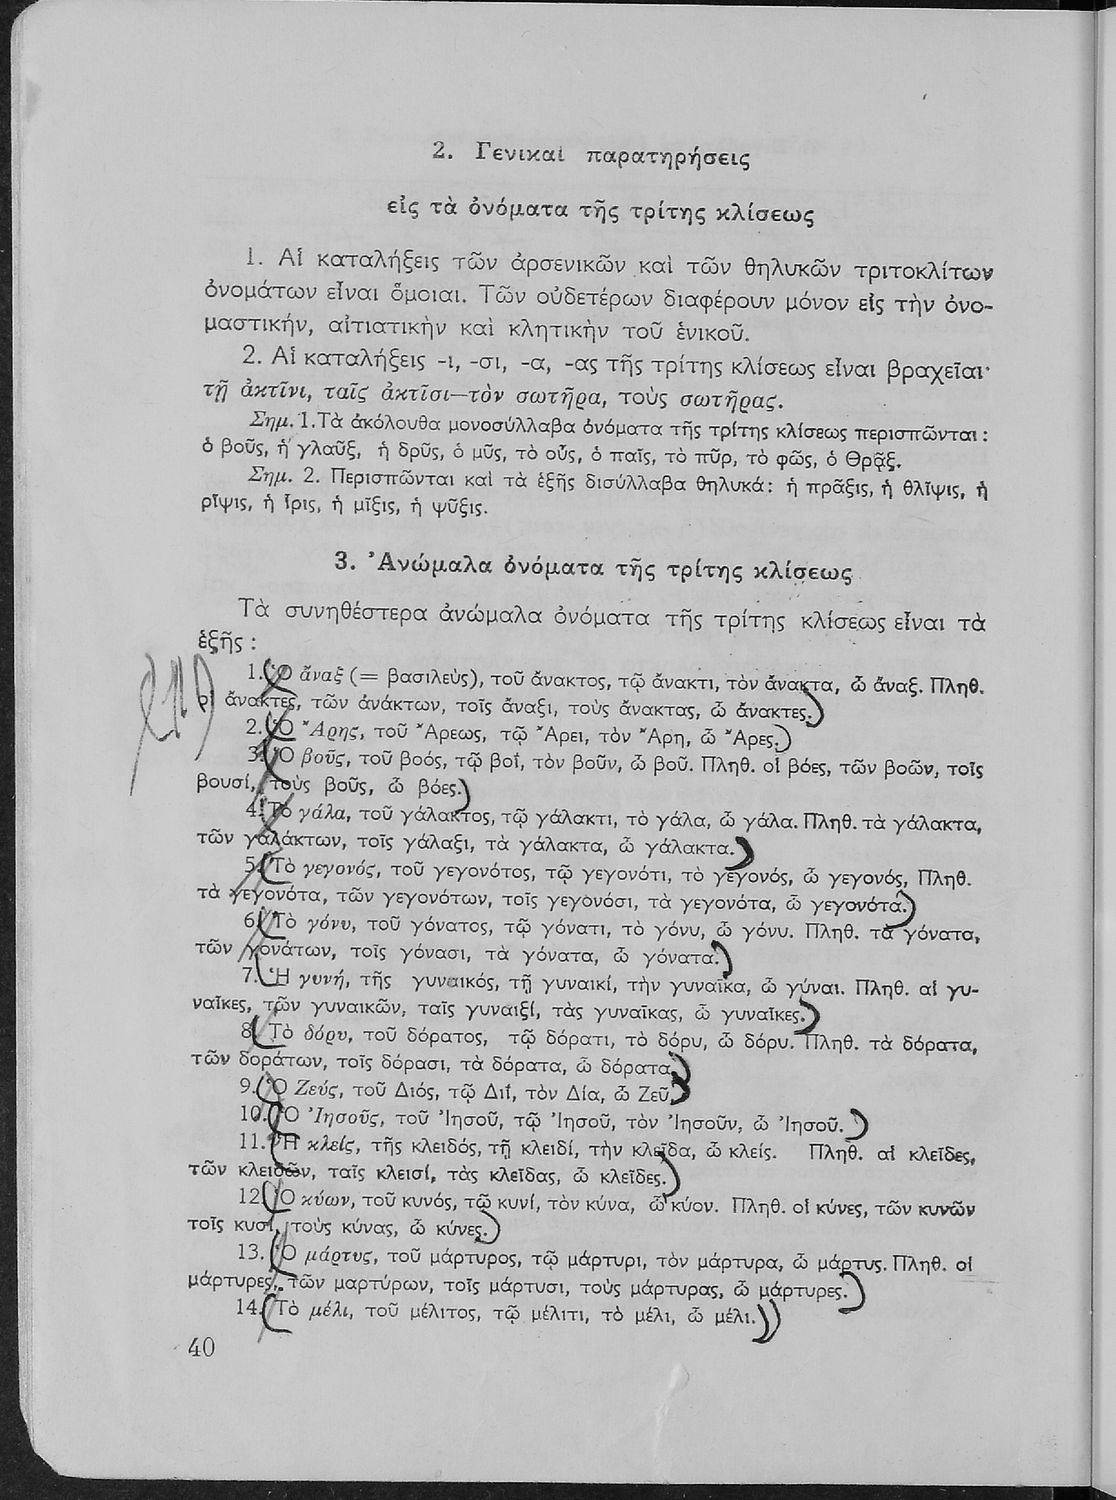 2. Γενικαὶ παρατηρήσεις
εἰς τὰ ὀνόματα τῆς τρίτης κλίσεως
1. Αἱ καταλήξεις τῶν ἀρσενικῶν καὶ τῶν θηλυκῶν τριτοκλίτων
ὀνομάτων εἶναι ὅμοιαι. Τῶν οὐδετέρων διαφέρουν μόνον εἰς τὴν ὀνο-
μαστικήν, αἰτιατικὴν καὶ κλητικὴν τοῦ ἑνικοῦ.
2. Αἱ καταλήξεις -ι, -σι, -α, -ας τῆς τρίτης κλίσεως εἶναι βραχεῖαι·
τῇ ἀκτῖνι, ταῖς ἀκτῖσι—τὸν σωτῆρα, τοὺς σωτῆρας.
Σημ. 1. Τὰ ἀκόλουθα μονοσύλλαβα ὀνόματα τῆς τρίτης κλίσεως περισπῶνται:
ὁ βοῦς, ἡ γλαῦξ, ἡ δρῦς, ὁ μῦς, τὸ οὖς, ὁ παῖς, τὸ πῦρ, τὸ φῶς, ὁ Θρᾷξ.
Σημ. 2. Περισπῶνται καὶ τὰ ἑξῆς δισύλλαβα θηλυκά: ἡ πρᾶξις, ἡ θλῖψις, ἡ
ρῖψις, ἡ ἶρις, ἡ μῖξις, ἡ ψῦξις.
3. Ἀνώμαλα ὀνόματα τῆς τρίτης κλίσεως
Τὰ συνηθέστερα ἀνώμαλα ὀνόματα τῆς τρίτης κλίσεως εἶναι τὰ
ἑξῆς :
1. Ὁ ἄναξ (= βασιλεὺς), τοῦ ἄνακτος, τῷ ἄνακτι, τὸν ἄνακτα, ὦ ἄναξ. Πληθ.
οἱ ἄνακτες, τῶν ἀνάκτων, τοῖς ἄναξι, τοὺς ἄνακτας, ὦ ἄνακτες.
2. Ὁ Ἄρης, τοῦ Ἄρεως, τῷ Ἄρει, τὸν Ἄρη, ὦ Ἄρες.
3. Ὁ βοῦς, τοῦ βοός, τῷ βοΐ, τὸν βοῦν, ὦ βοῦ. Πληθ. οἱ βόες, τῶν βοῶν, τοῖς
βουσί, τοὺς βοῦς, ὦ βόες.
4. Τὸ γάλα, τοῦ γάλακτος, τῷ γάλακτι, τὸ γάλα, ὦ γάλα. Πληθ. τὰ γάλακτα,
τῶν γαλάκτων, τοῖς γάλαξι, τὰ γάλακτα, ὦ γάλακτα.
5. Τὸ γεγονός, τοῦ γεγονότος, τῷ γεγονότι, τὸ γεγονός, ὦ γεγονός, Πληθ.
τὰ γεγονότα, τῶν γεγονότων, τοῖς γεγονόσι, τὰ γεγονότα, ὦ γεγονότα.
6. Τὸ γόνυ, τοῦ γόνατος, τῷ γόνατι, τὸ γόνυ, ὦ γόνυ. Πληθ. τὰ γόνατα,
τῶν γονάτων, τοῖς γόνασι, τὰ γόνατα, ὦ γόνατα.
7. Ἡ γυνή, τῆς γυναικός, τῇ γυναικί, τὴν γυναῖκα, ὦ γύναι. Πληθ. αἱ γυ-
ναῖκες, τῶν γυναικῶν, ταῖς γυναιξί, τὰς γυναῖκας, ὦ γυναῖκες.
8. Τὸ δόρυ, τοῦ δόρατος, τῷ δόρατι, τὸ δόρυ, ὦ δόρυ. Πληθ. τὰ δόρατα,
τῶν δοράτων, τοῖς δόρασι, τὰ δόρατα, ὦ δόρατα.
9. Ὁ Ζεύς, τοῦ Διός, τῷ Διΐ, τὸν Δία, ὦ Ζεῦ.
10. Ὁ Ἰησοῦς, τοῦ Ἰησοῦ, τῷ Ἰησοῦ, τὸν Ἰησοῦν, ὦ Ἰησοῦ.
11. Ἡ κλείς, τῆς κλειδός, τῇ κλειδί, τὴν κλεῖδα, ὦ κλείς. Πληθ. αἱ κλεῖδες,
τῶν κλειδῶν, ταῖς κλεισί, τὰς κλεῖδας, ὦ κλεῖδες.
12. Ὁ κύων, τοῦ κυνός, τῷ κυνί, τὸν κύνα, ὦ κύον. Πληθ. οἱ κύνες, τῶν κυνῶν
τοῖς κυσί, τοὺς κύνας, ὦ κύνες.
13. Ὁ μάρτυς, τοῦ μάρτυρος, τῷ μάρτυρι, τὸν μάρτυρα, ὦ μάρτυς. Πληθ. οἱ
μάρτυρες, τῶν μαρτύρων, τοῖς μάρτυσι, τοὺς μάρτυρας, ὦ μάρτυρες.
14. Τὸ μέλι, τοῦ μέλιτος, τῷ μέλιτι, τὸ μέλι, ὦ μέλι.
40